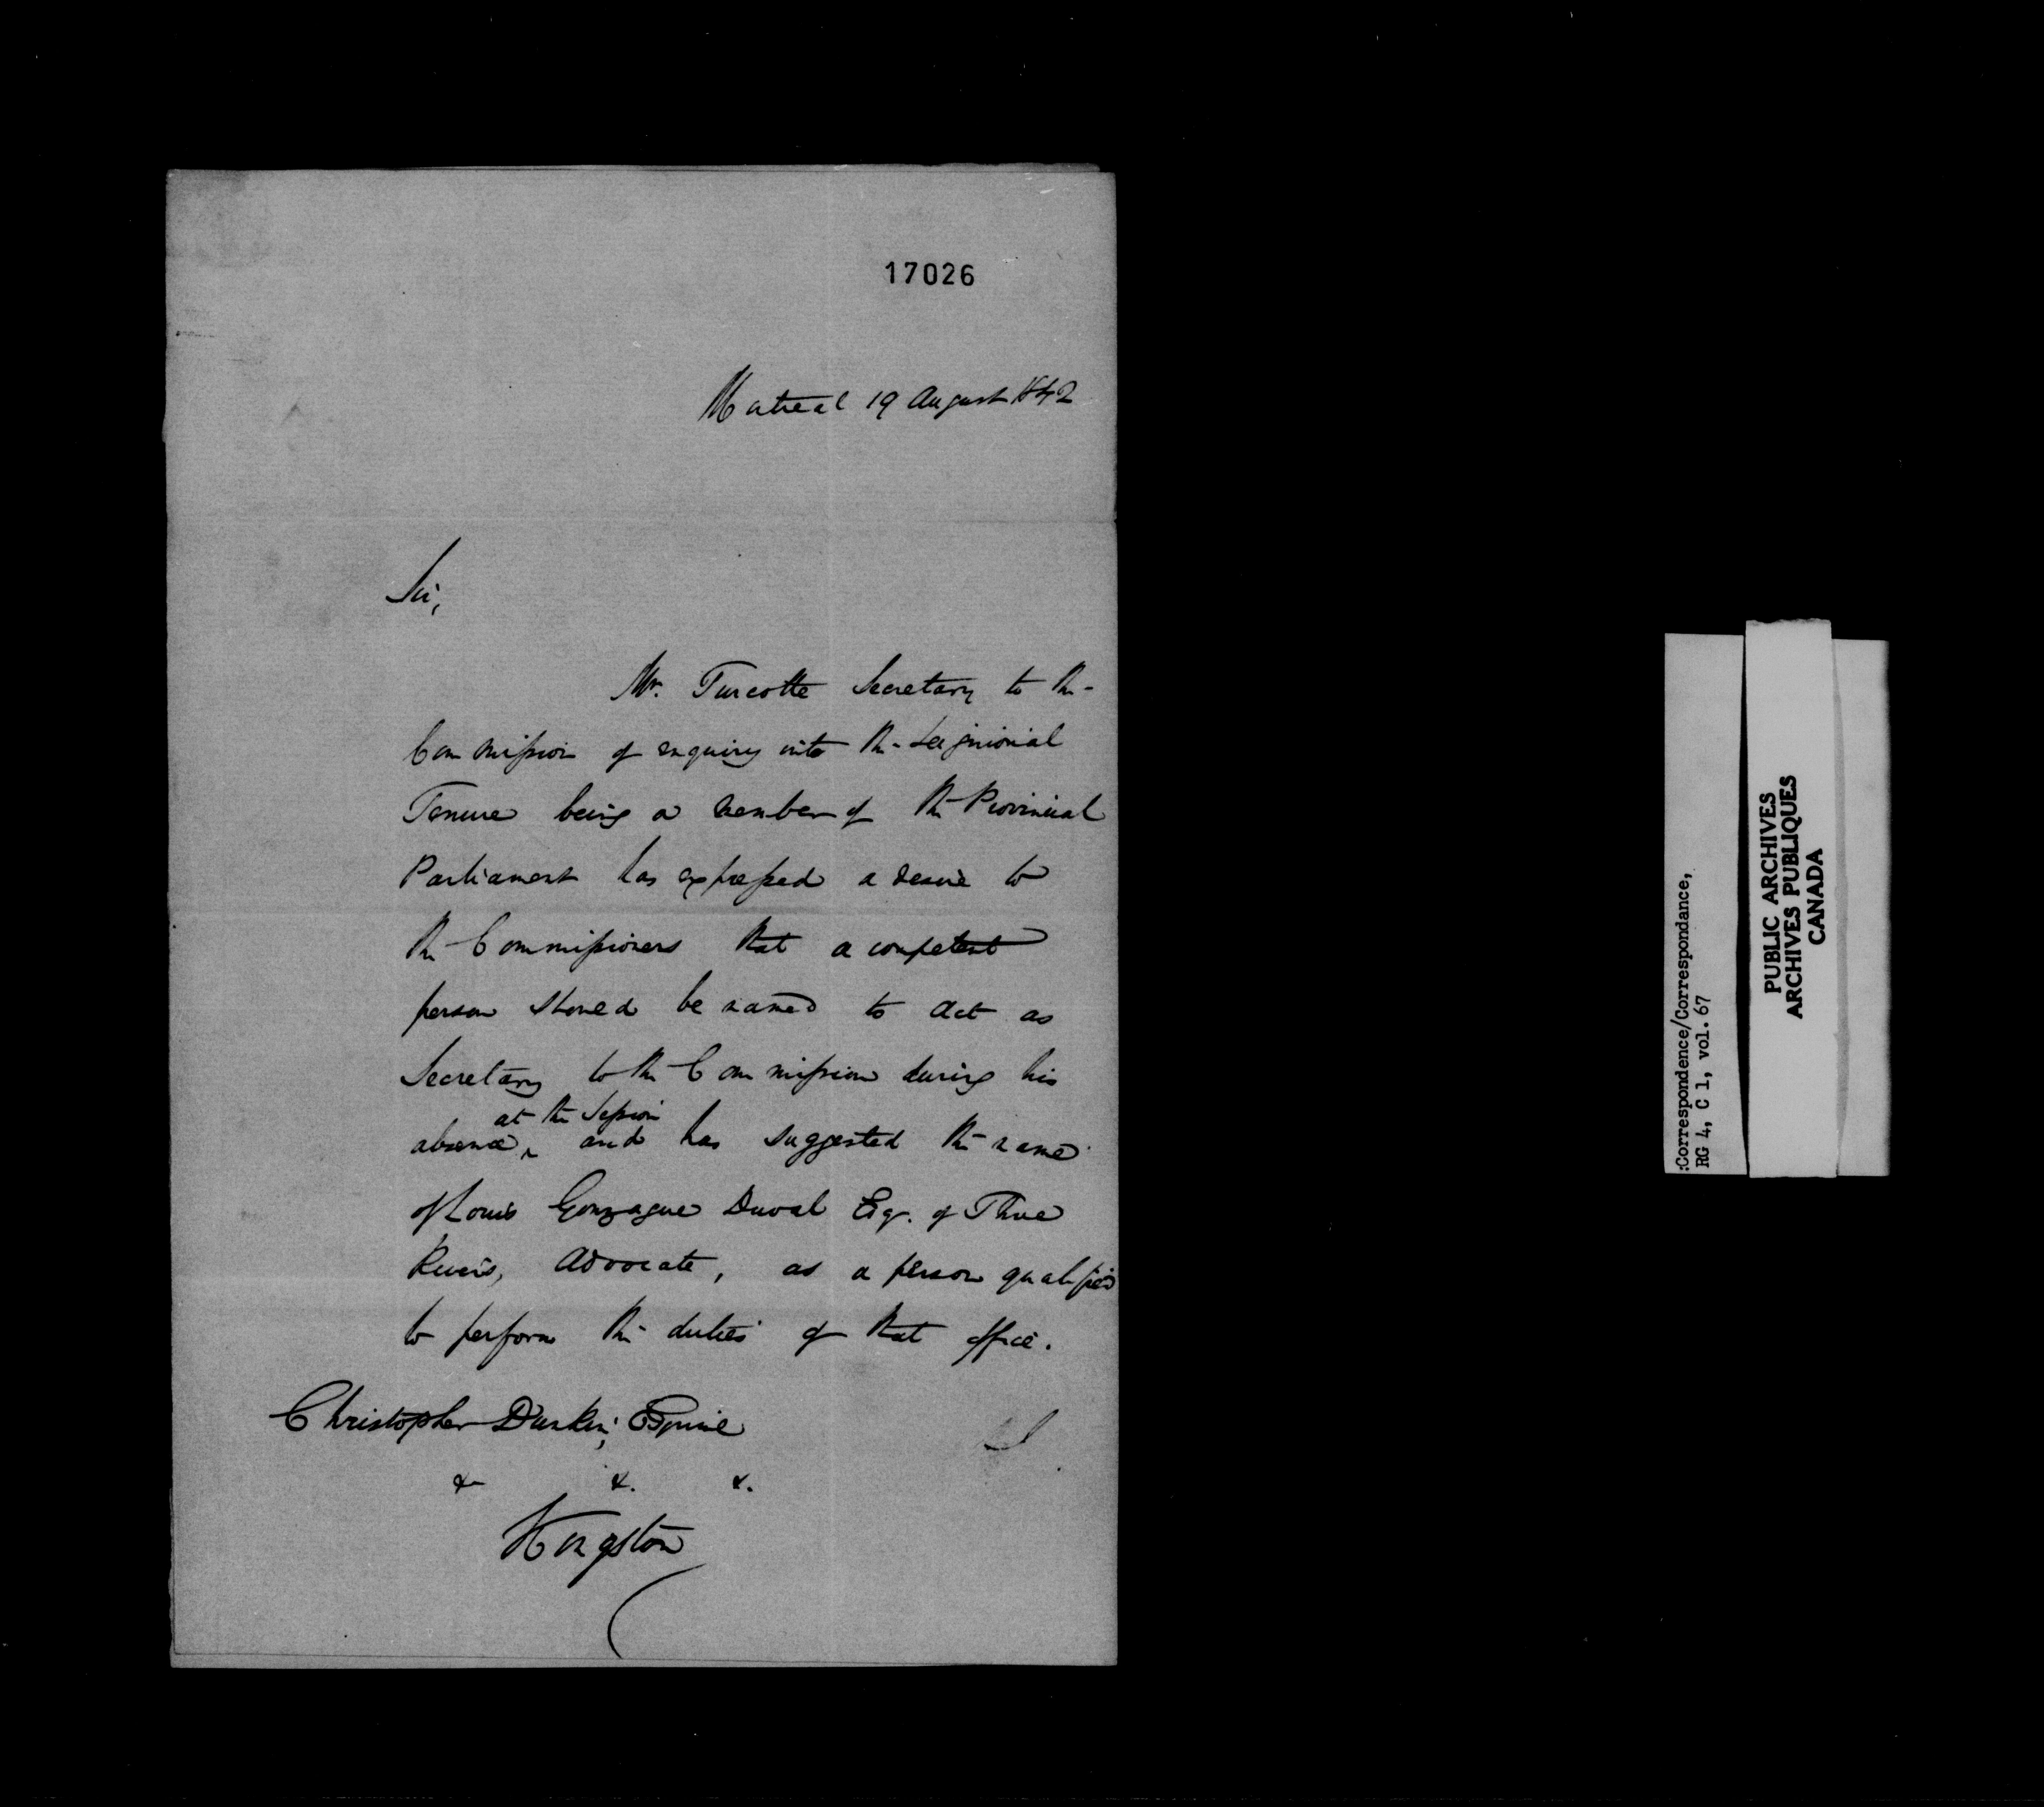 17026
Montreal 19 August 1842
Sir,
Mr. Turcotte Secretary to the
Commission of enquiry into the Seigniorial
Tenure being a member of the Provincial
Parliament has expressed a desire to
the Commissioners that a competent
person should be named to act as
Secretary to the Commission during his
at the Session
absence, and has suggested the name
of Louis Gonzague Duval Esq. of Three
Rivers, Advocate, as a person qualified
to perform the duties of that office.
Christopher Dunkin, Esquire
& &. &.
Kingston
:Correspondence/Correspondance,
RG 4, C 1, vol. 67
PUBLIC ARCHIVES
ARCHIVES PUBLIQUES
CANADA